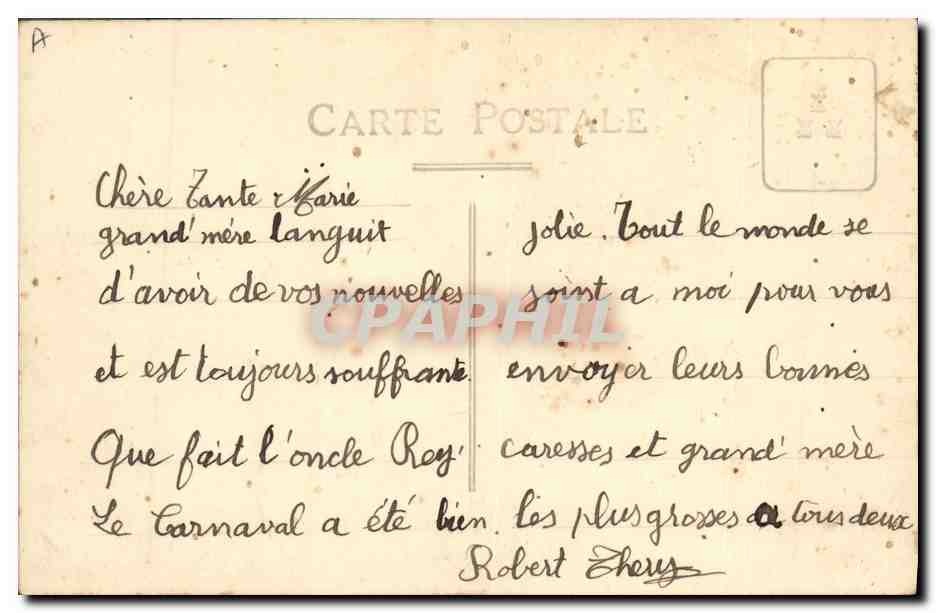 A
CARTE POSTALE
Chère Tante Marie
grand' mére languit
d'avoir de vos nouvelles
et est toujours souffrante.
Que fait l'oncle Rey
Le Carnaval a été bien
jolie. Tout le monde se
joint a moi pour vous
envoyer leurs bonnes
caresses et grand' mère
les plus grosses a tous deux
Robert Thery
CPAPHIL